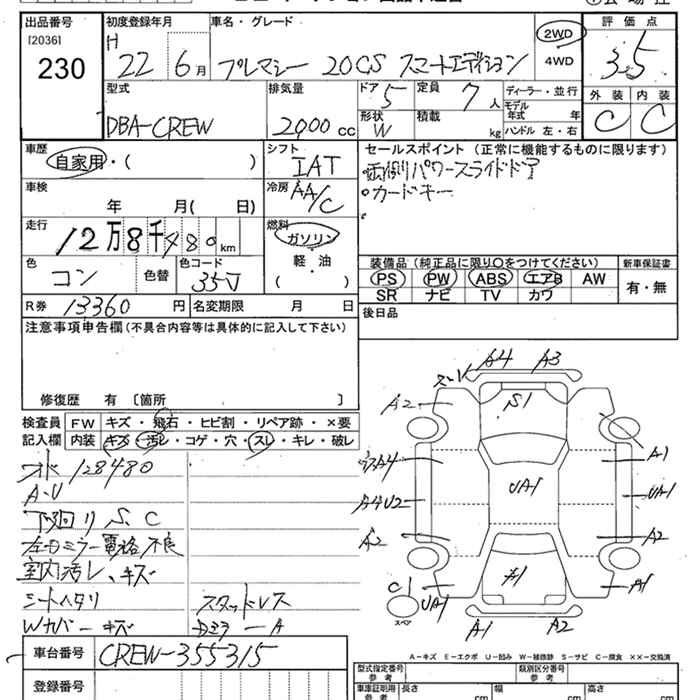 出品番号
[2036]
230
初度登録年月
H 22 6月
車名・グレード
プレマシー 20CS スマートエディション
2WD
4WD
評価点
3.5
外装 内装
C C
型式
DBA-CREW
排気量
2000 cc
ドア 5
定員 7人
形状 W
積載 kg
ディーラー・並行
モデル年式 年
ハンドル 左・右
車歴
自家用・( )
シフト
IAT
セールスポイント(正常に機能するものに限ります)
両側パワースライドドア
カードキー
車検
年 月( 日)
冷房
AA/C
走行
12万8千480km
燃料
ガソリン
軽・油
( )
色
コン
色替
色コード
35J
装備品(純正品に限り○をつけてください)
PS PW ABS エアB AW
SR ナビ TV カワ
新車保証書
有・無
R券 13360円
名変期限 月 日
後日品
注意事項申告欄(不具合内容等は具体的に記入して下さい)
修復歴 有 〔箇所 〕
検査員記入欄
FW キズ・飛石・ヒビ割・リペア跡・×要
内装 キズ・汚レ・コゲ・穴・スレ・キレ・破レ
128480
A-U
下回り S C
左ドミラー電格不良
室内汚レ、キズ
シートヘタリ
Wカバーキズ
スタッドレス
A4 A3
A2
S1
A4
A1
A4U2
UA1
UA1
A2
A2
A1
C1
UA1
A1
A1 A2
スペア
A-キズ E-エクボ U-凹み W-補修跡 S-サビ C-腐食 ××-交換済
車台番号
CREW-355315
登録番号
型式指定番号 参考
類別区分番号 参考
車庫証明用 参考
長さ cm
幅 cm
高さ cm